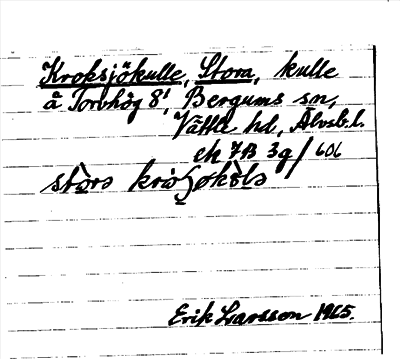 Kroksjökulle, Stora, kulle
å Torvhög 8¹, Bergums sn,
Vättle hd, Älvsb.l.
ek 7B 3g/606
Erik Larsson 1965.